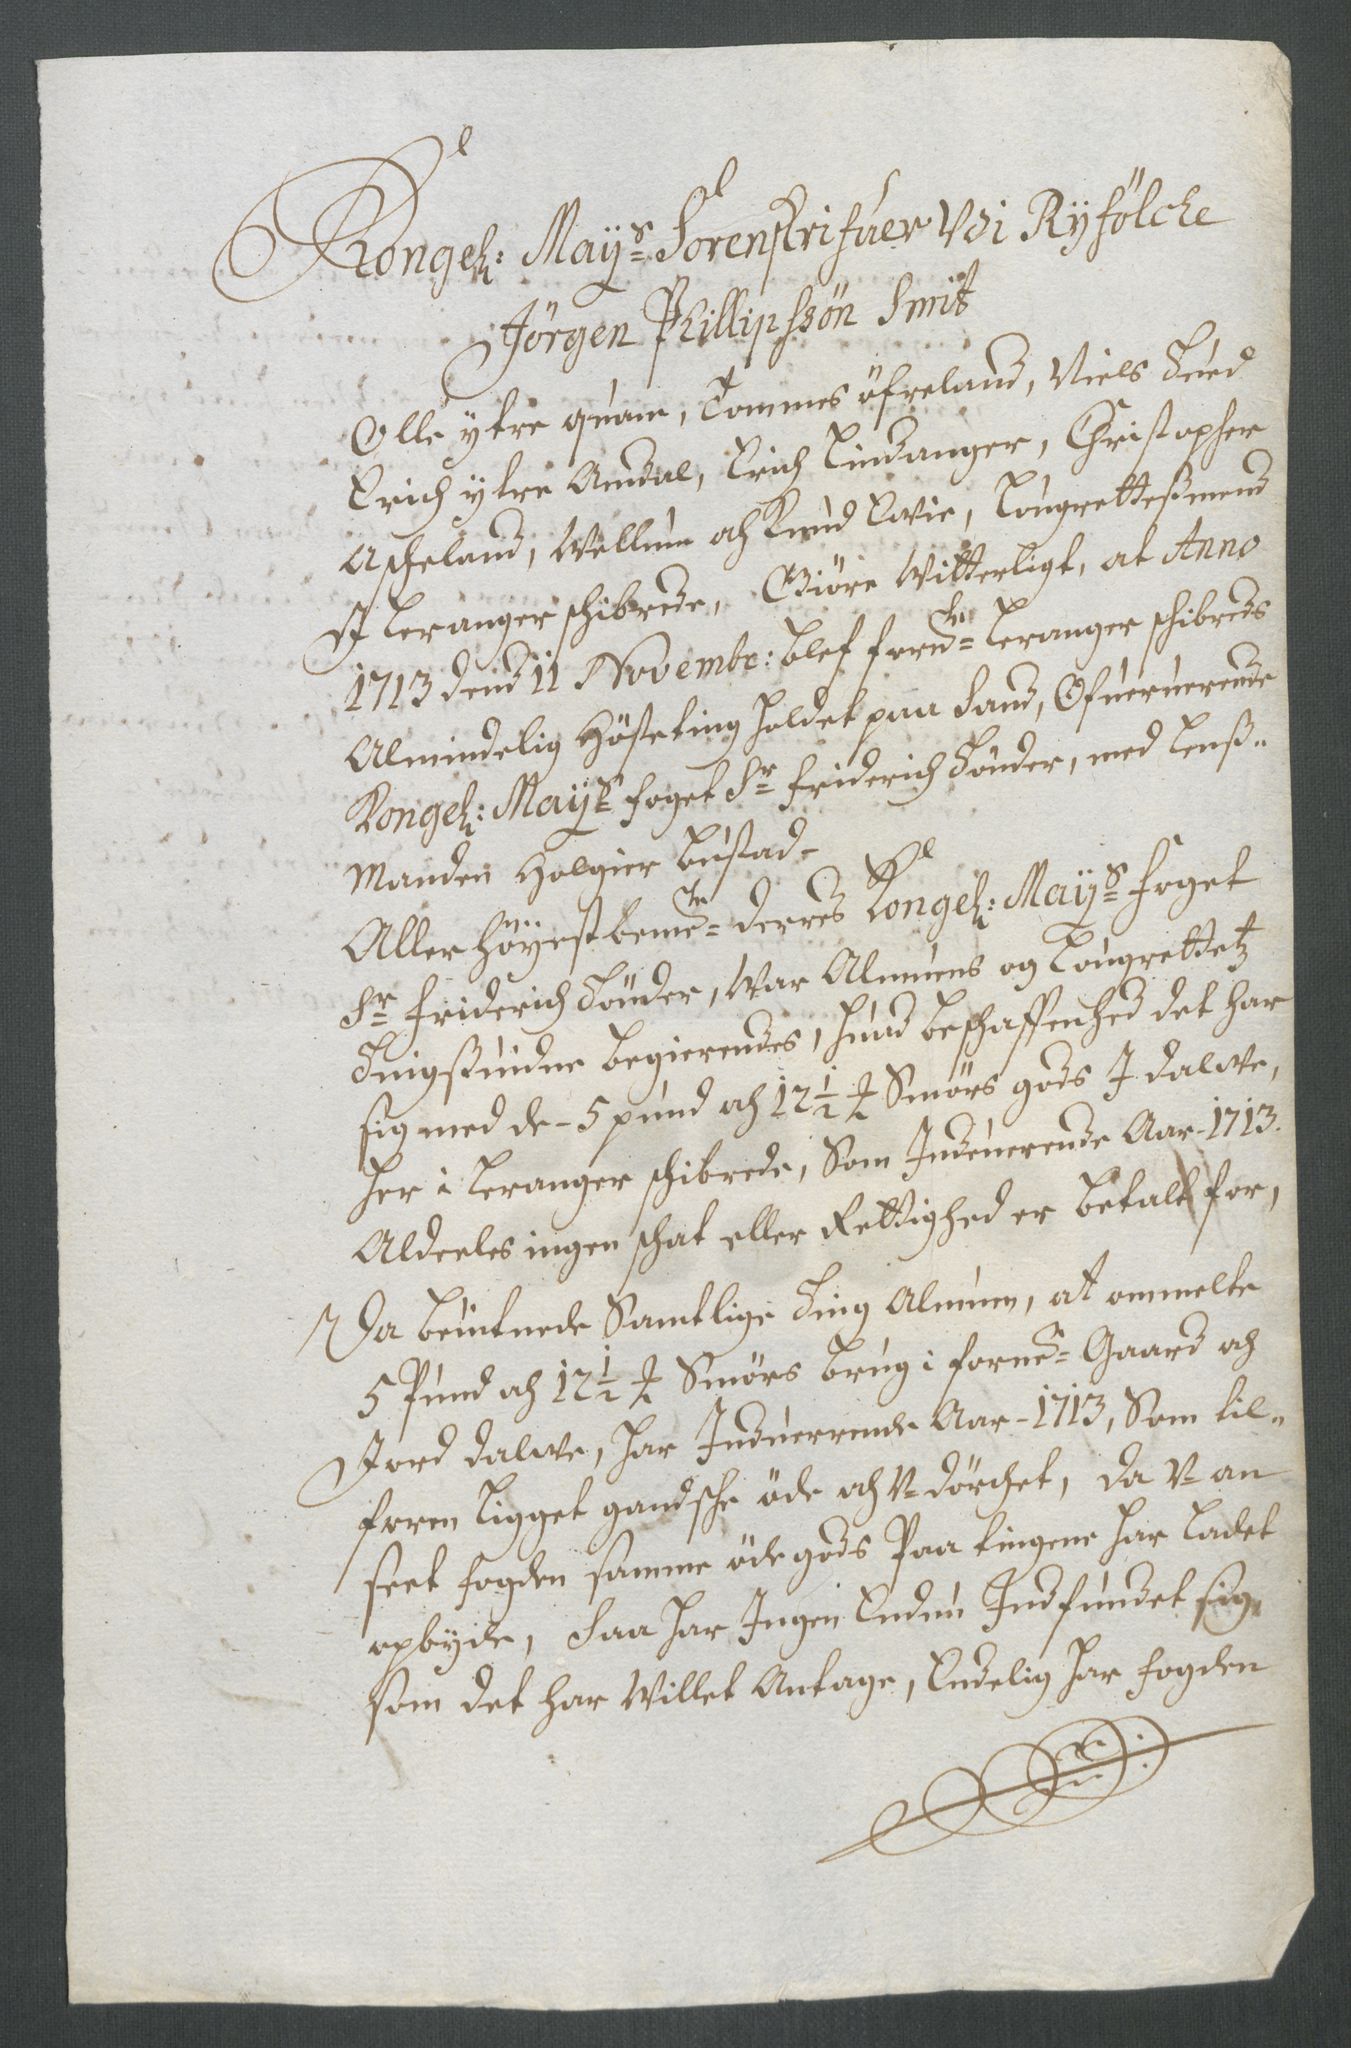 Kongel: Mayß Sorenskrifuer Udi Ryfölche
Jörgen Phillipssön Smit
Olle ytre quam, Tommes öfreland, Niels Tued
Erich ytre Amdal, Erich Lindanger, Christopher
Ascheland, Wellum och Knud Lvie, Laugrettesmend
I Leranger schibrede, Giöre Witterligt, at Anno
1713 dend 11 Novembr: blef forne Leranger schibreds
Almindelig Hösteting holdet paa Sand, Ofueruerende
Kongel: Mayß foget Sr friderich Tönder, med Lenß-
manden Holgier Bustad-
Aller Höyest bemte derres Kongel: Mayß foget
Sr friderich Tönder, War Almuens og Laugrettetz
Tingswidne begierendes, huad beschaffenhed det har
sig med de - 5 pund och 12½ ℔ Smörs gods I Dalwe,
her i Leranger schibrede, Som Indeuerende Aar-1713.
Aldeeles ingen schat eller Rettighed er betalt for,
Da beuitnede Samtlige Ting Almuen, at ommelte
5 Pund och 12½ ℔ Smörs brug i forne Gaard och
Jord Dalwe, har Indeuerende Aar-1713, Som til-
foren ligget gandsche öde och U-dörchet, da U-an
seet fogden samme öde gods Paa tingene har ladet
opbyde, Saa har Ingen Endnu Indfundet sig,
som det har Willet Antage, Endelig har fogden